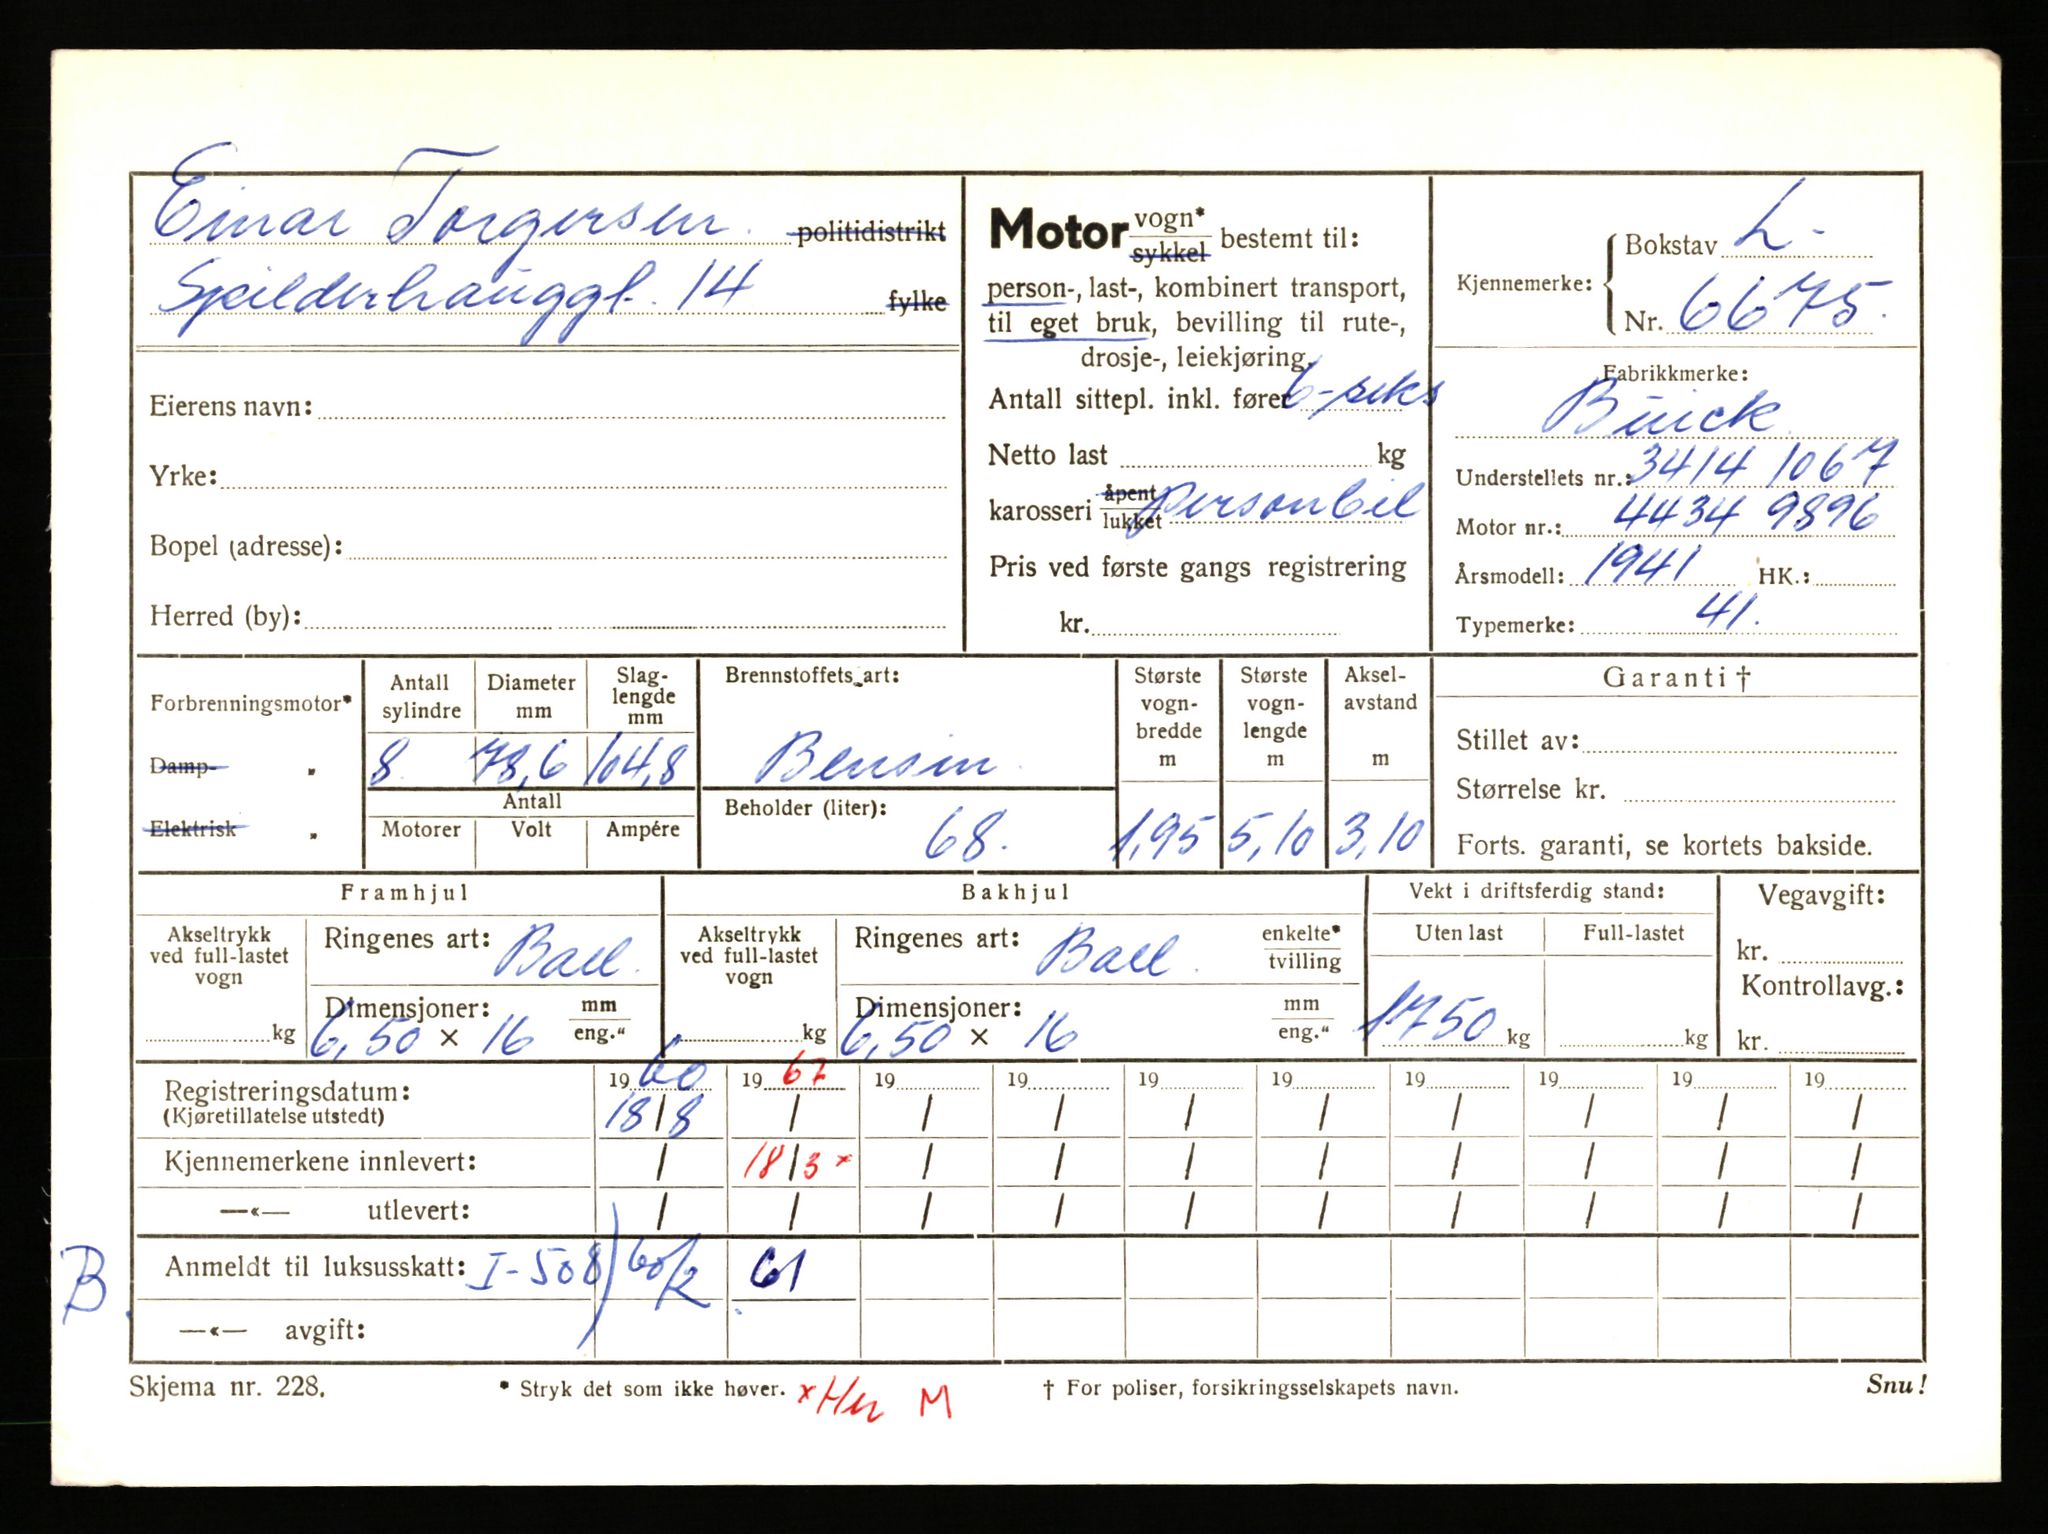 Einar Torgersen politidistrikt
Spilderhauggt. 14 fylke
Eierens navn:
Yrke:
Bopel (adresse):
Herred (by):
Motor vogn* sykkel bestemt til:
person-, last-, kombinert transport,
til eget bruk, bevilling til rute-,
drosje-, leiekjøring.
Antall sittepl. inkl. fører 6-seks
Netto last kg
karosseri åpent lukket personbil
Pris ved første gangs registrering
kr.
Kjennemerke: Bokstav L-
Nr. 6675.
Fabrikkmerke:
Buick
Understellets nr.: 3414 1067
Motor nr.: 4434 9896
Årsmodell: 1941 HK.:
Typemerke: 41.
Forbrenningsmotor*
Damp- "
Elektrisk "
Antall sylindre Diameter mm Slag-lengde mm
8 78,6 104,8
Antall
Motorer Volt Ampére
Brennstoffets art:
Bensin
Beholder (liter):
68.
Største vogn-bredde m
1,95
Største vogn-lengde m
5,10
Aksel-avstand m
3,10
Garanti †
Stillet av:
Størrelse kr.
Forts. garanti, se kortets bakside.
Framhjul
Akseltrykk ved full-lastet vogn kg
Ringenes art: Ball.
Dimensjoner: mm eng."
6,50 × 16
Bakhjul
Akseltrykk ved full-lastet vogn kg
Ringenes art: Ball. enkelte* tvilling
Dimensjoner: mm eng."
6,50 × 16
Vekt i driftsferdig stand:
Uten last Full-lastet
1750 kg kg
Vegavgift:
kr.
Kontrollavg.:
kr.
Registreringsdatum: 19 60 19 67 19 19 19 19 19 19 19 19
(Kjøretillatelse utstedt) 18/8 / / / / / / / / /
Kjennemerkene innlevert: / 18/3 × / / / / / / / /
—«— utlevert: / / / / / / / / / /
B. Anmeldt til luksusskatt: I-508) 60/2 61
—«— avgift:
Skjema nr. 228. * Stryk det som ikke høver. × M † For poliser, forsikringsselskapets navn. Snu!